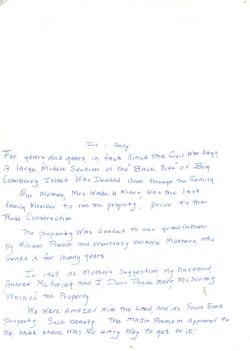 Dec - Andy
For years, and years, in fact since the Civil War days,
A large Middle Section of the "Back Side" of Big
Cranberry Island was Deeded down through the Family.
Our Mother, Mrs. Wade H Marr, was the last
family Member to own the property, prior to the
Road Construction.
The property was deeded to our grandfather
by William Preble and eventually became Mothers, who
owned it for many years.
In 1968, at Mothers Suggestion my husband
Andrew McSorley and I, Doris Marr McSorley
Walked the Property.
We were Amazed with the Land and its Shore Front
property. Such beauty. The Major Problem appeared to
be that there was No easy way to get to it!